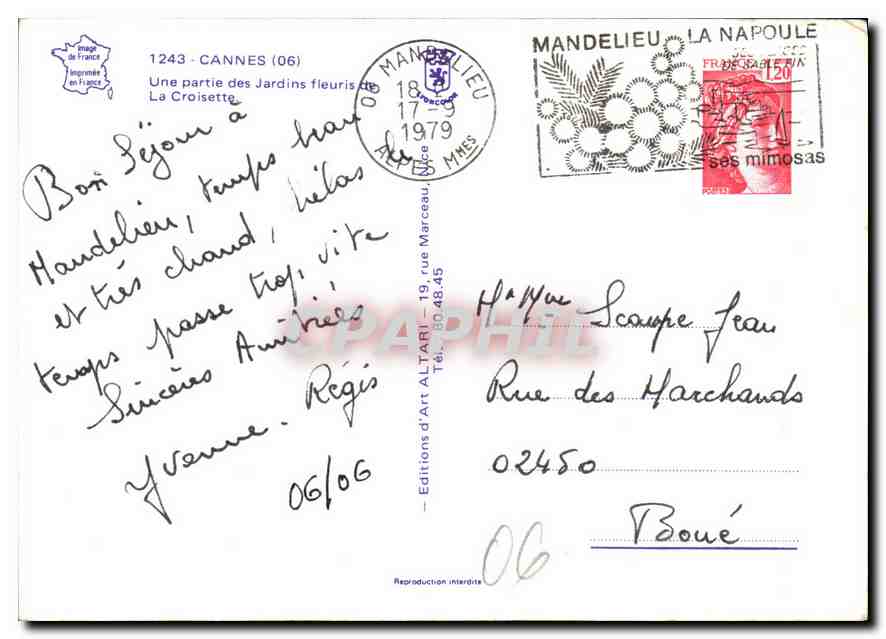 Image
de France
Imprimée
en France
1243 - CANNES (06)
Une partie des Jardins fleuris de
La Croisette
Bon Séjour à
Mandelieu, temps beau
et très chaud, hélas le
temps passe trop vite
Sincères Amitiés
Yvonne. Régis
06/06
06 MANDELIEU
18 H
17-9
1979
ALPES MMES
MANDELIEU LA NAPOULE
DE SABLE FIN
ses mimosas
1,20
— Editions d'Art ALTARI - 19, rue Marceau, Nice
Tél. 80.48.45
CPAPHIL
Mr Mme Scampe Jean
Rue des Marchands
02450
Boué
06
Reproduction interdite